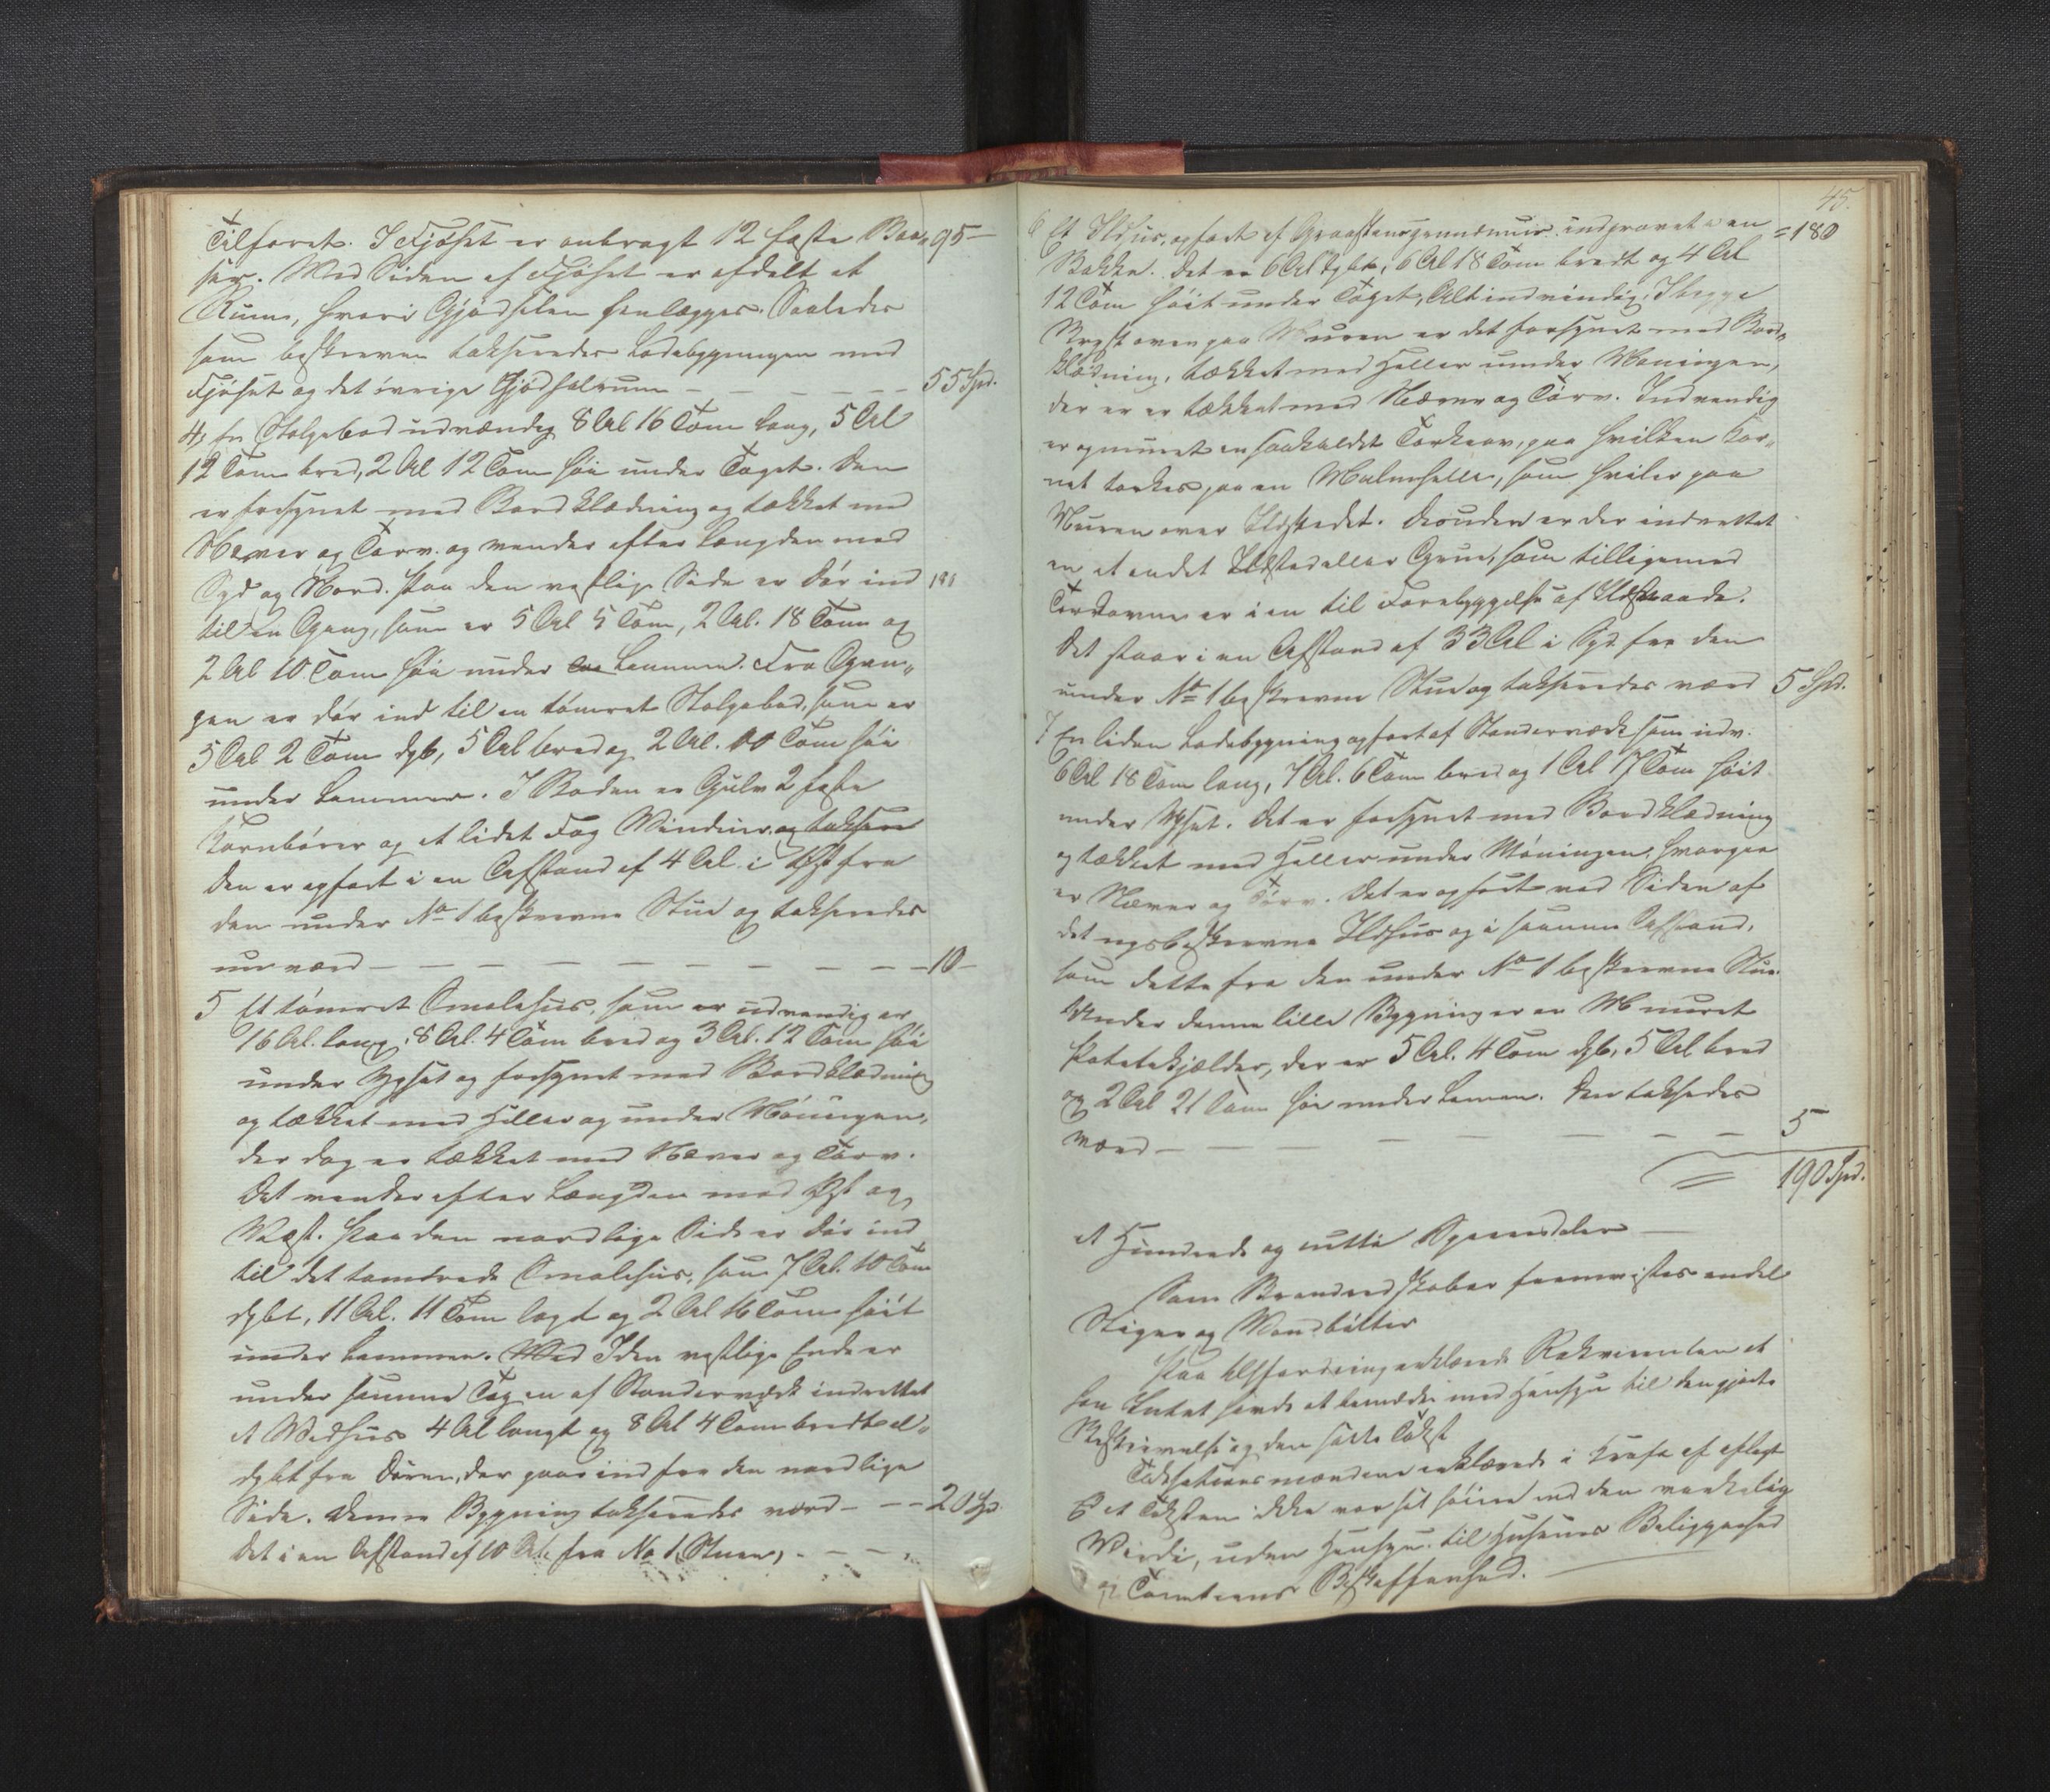 Tilforet. I Fjøset er anbragt 12 faste Baa„ 95 –
ser. Ved Siden af Fjøset er afdelt et
Rum, hvori Gjødselen henlægges. Saaledes
som beskreven takseredes Ladebygningen med
Fjøset og det øvrige Gjødselrum – – – – 55 Spd.
4, En Stolpebod udvændig 8 Al 16 Tom lang, 5 Al
12 Tom bred, 2 Al 12 Tom høi under Taget. Den
er forsynet med Bordklædning og tækket med
Næver og Torv. og vender efter Længden mod
Syd og Nord. Paa den vestlige Side er Dør ind
til en Gang, som er 5 Al 5 Tom, 2 Al. 18 Tom og
2 Al 10 Tom høi under Lemmen. Fra Gan„
gen er Dør ind til en tømret Stolpebod, som er
5 Al 2 Tom dyb, 5 Al bred og 2 Al. 10 Tom høi
under Lemmen. I Boden er Gulv 2 faste
Kornbører og et lidet Fag Vinduer og taksere
den er opført i en Afstand af 4 Al i Øst fra
den under No 1 beskrevne Stue og takseredes
nu værd – – – – – – – – – 10 –
5 Et tømret Smalehus, som er udvendig er
16 Al. lang, 8 Al. 4 Tom bred og 3 Al. 12 Tom høi
under Gesat og forsynet med Bordklædning
og tækket med Heller og under Møningen,
der dog er tækket med Næver og Torv.
Det vender efter Længden mod Øst og
Vest. Paa den nordlige Side er Dør ind
til det tømrede Smalehus, som 7 Al. 10 Tom
dybt, 11 Al. 11 Tom lagt og 2 Al 16 Tom høit
under Lemmen. Ved I den vestlige Ende er
under samme Tag en af Stonderværk indrettet
et Vedhus 4 Al langt og 8 Al 4 Tom bredt el„
dybt fra Døren, der gaar ind fra den nordlige
Side. Denne Bygning takseredes værd – – – 20 Spd.
Det i en Afstand af 10 Al. fra No 1 Stuen, – – –
45.
6 Et Ildhus, opført af Graastensgrundmur indgravet i en = 180
Bakke. Det er 6 Al dybt, 6 Al 18 Tom bredt og 4 Al
12 Tom høit under Taget, Alt indvindig. I begge
Bryst oven paa Muren er det forsynet med Bord„
klædning, tækket med Heller under Møningen,
der er er tækket med Næver og Torv. Indvendig
er opmuret en saakaldet Tørkeovn, paa hvilken Kor„
net tørkes paa en Malmhelle, som hviler paa
Muren over Ildstedet. Desuden er der indrettet
en et andet Ildsted eller Grue, som tilligemed
Tørkovnen er i en til Forebyggelse af Ildsvaade.
Det staar i en Afstand af 33 Al i Syd fra den
under No 1 beskrevne Stue og takseredes værd 5 Spd.
7 En liden Ladebygning opført af Stonderværk som udv.
6 Al 18 Tom lang, 7 Al. 6 Tom bred og 1 Al 17 Tom høit
under Gesat. Det er forsynet med Bordklædning
og tækket med Heller under Møningen, hvorpaa
er Næver og Torv. Det er opført ved Siden af
det nysbeskrevne Ildhus og i samme Afstand,
som dette fra den under No 1 beskrevne Stue.
Under denne lille Bygning er en Muret
Potetekjælder, der er 5 Al. 4 Tom dyb, 5 Al bred
og 2 Al 21 Tom høi under Lemen. Den taksedes
værd – – – – – – – 5
190 Spd.
et Hundrede og nitti Speciedaler –
Som Brandredskaber fremvistes endel
Stiger og Vandbøtter
Paa Udfordring erklærede Rekvirenten at
han Intet havde at bemærke med Hensyn til den gjorte
Beskrivelse og den satte Takst
Taksationsmændene erklærede i Kraft af aflagt
Ed at Taksten ikke var sat høiere end den virkelige
Værdi, uden Hensyn til Husenes Beliggenhed
og Tomtens Beskaffenhed. –